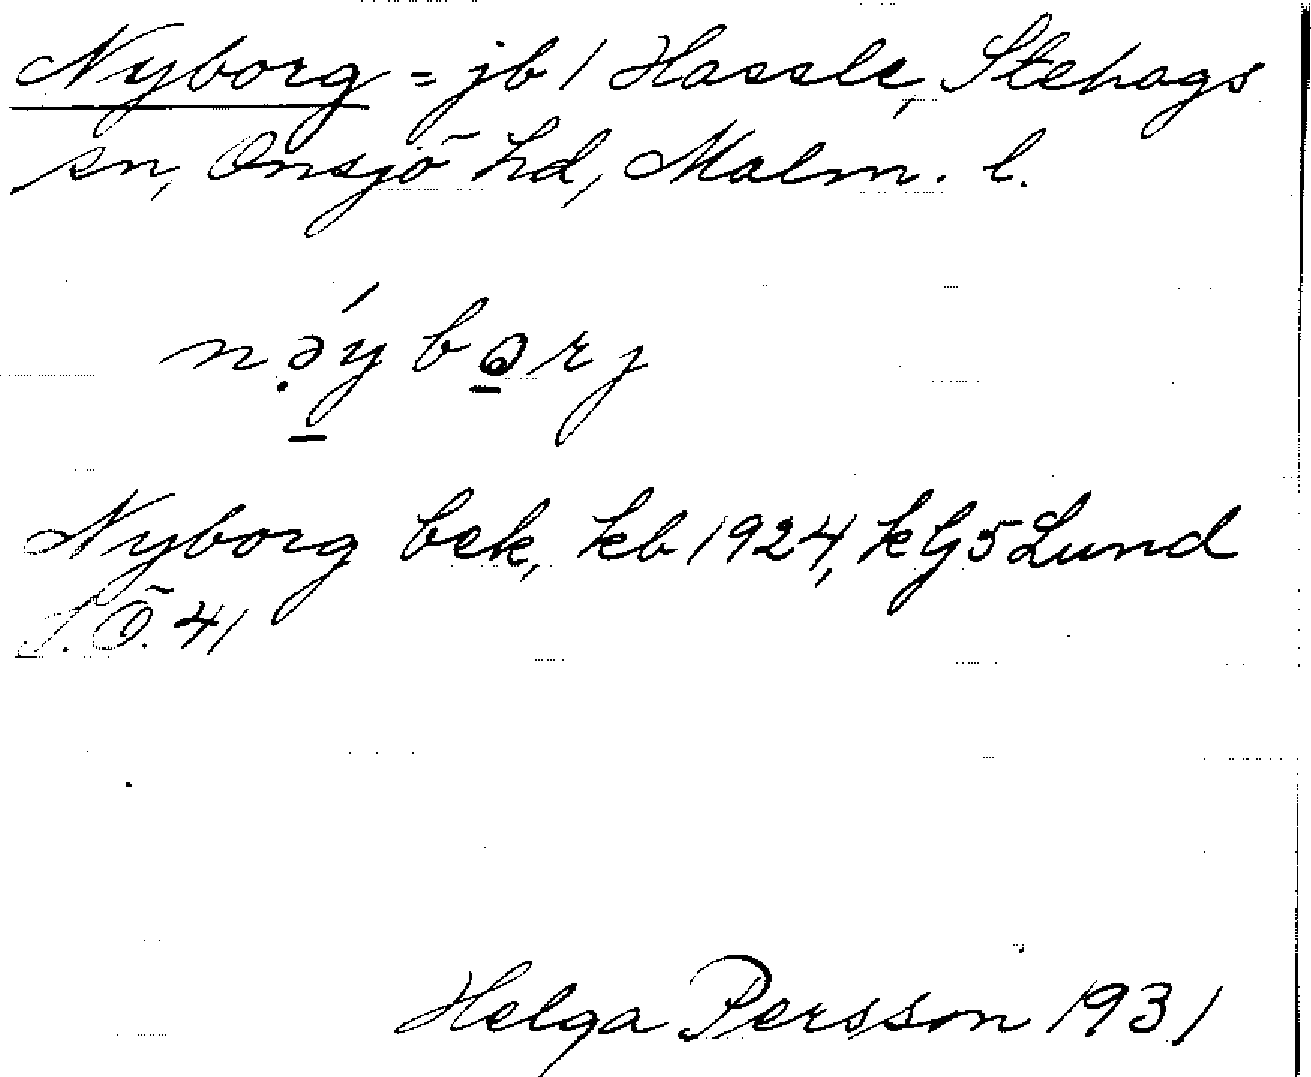 Nyborg = jb 1 Hassle, Stehags
sn, Onsjö hd, Malm. l.
nə̣ýbərj
Nyborg bek, kb 1924, kG5 Lund
S.Ö. 41
Helga Persson 1931